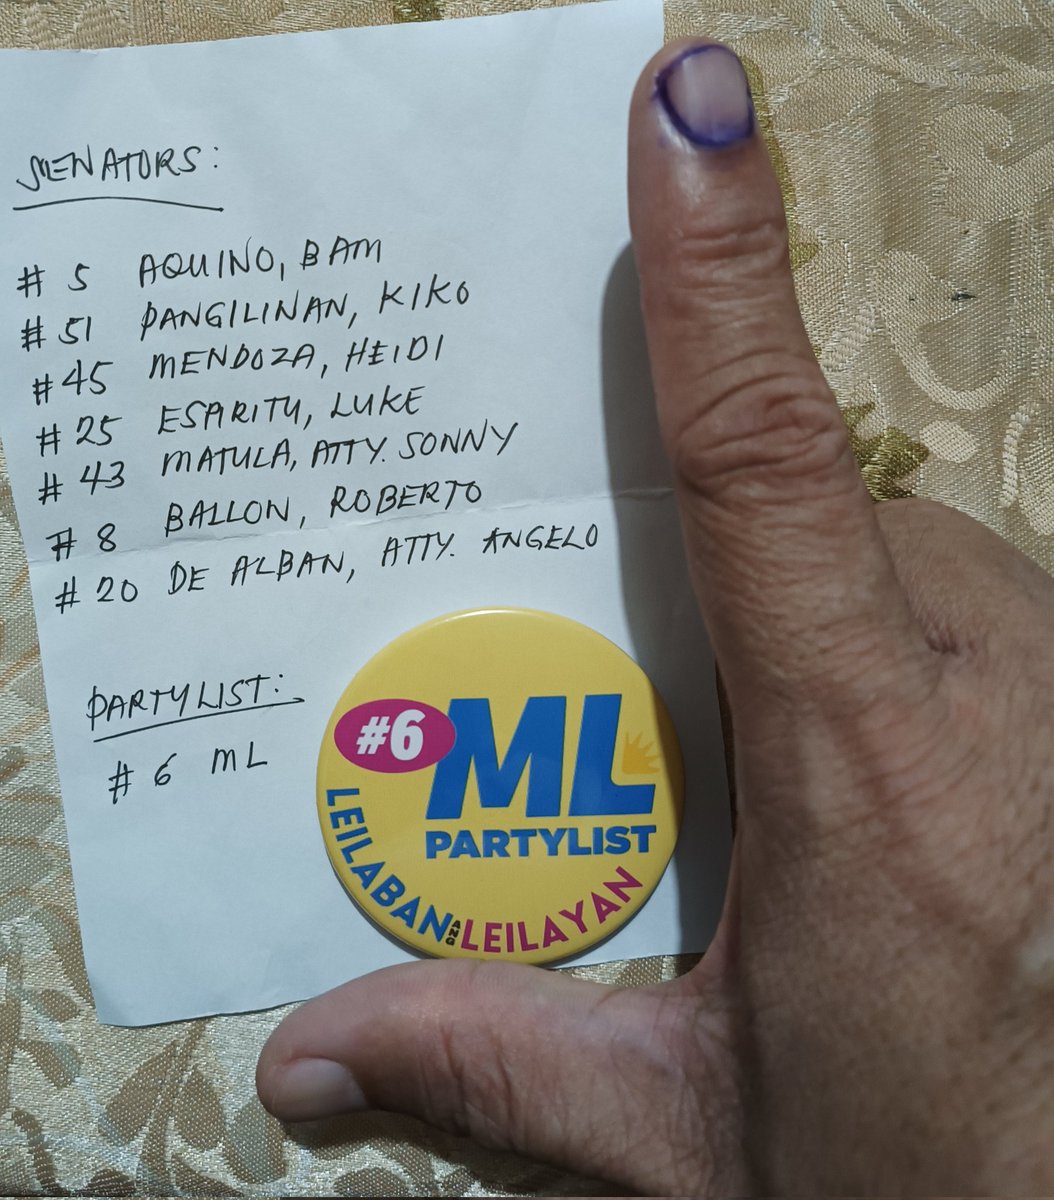 SENATORS:
# 5 AQUINO, BAM
# 51 PANGILINAN, KIKO
# 45 MENDOZA, HEIDI
# 25 ESPIRITU, LUKE
# 43 MATULA, ATTY. SONNY
# 8 BALLON, ROBERTO
# 20 DE ALBAN, ATTY. ANGELO
PARTYLIST:
# 6 ML
#6 ML
PARTYLIST
LEILABAN ANG LEILAYAN